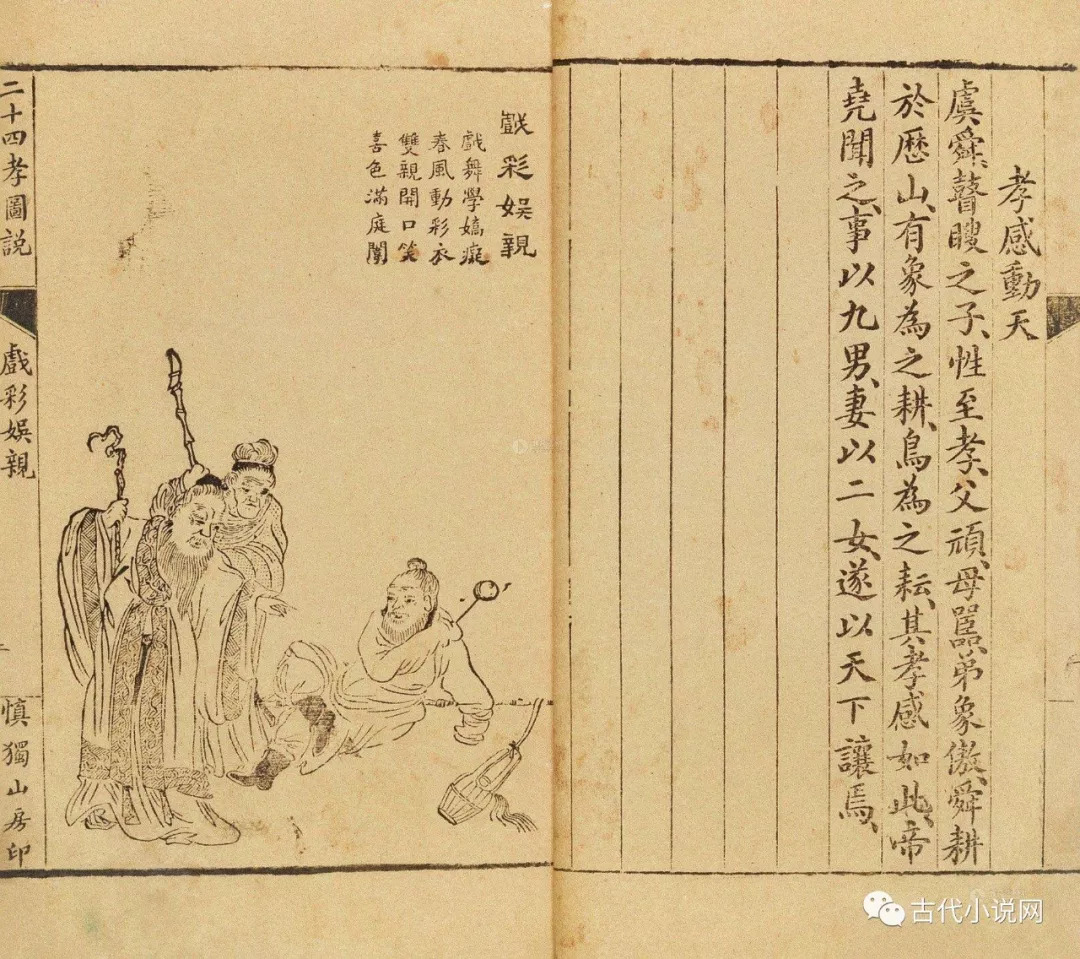 孝感動天
虞舜、瞽瞍之子、性至孝、父頑、母嚚、弟象傲、舜耕
於歷山、有象為之耕、鳥為之耘、其孝感如此、帝
堯聞之、事以九男、妻以二女、遂以天下讓焉、
戲彩娛親
戲舞學嬌癡
春風動彩衣
雙親開口笑
喜色滿庭闈
二十四孝圖説
戲彩娛親
慎獨山房印
古代小说网